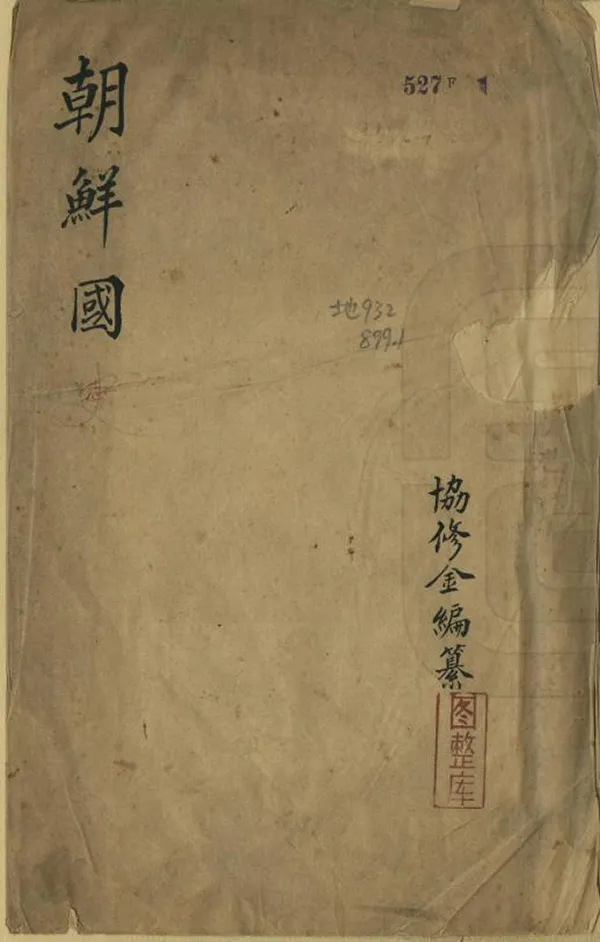 朝鮮國
527F
地932
899.1
協修金編纂
图整库